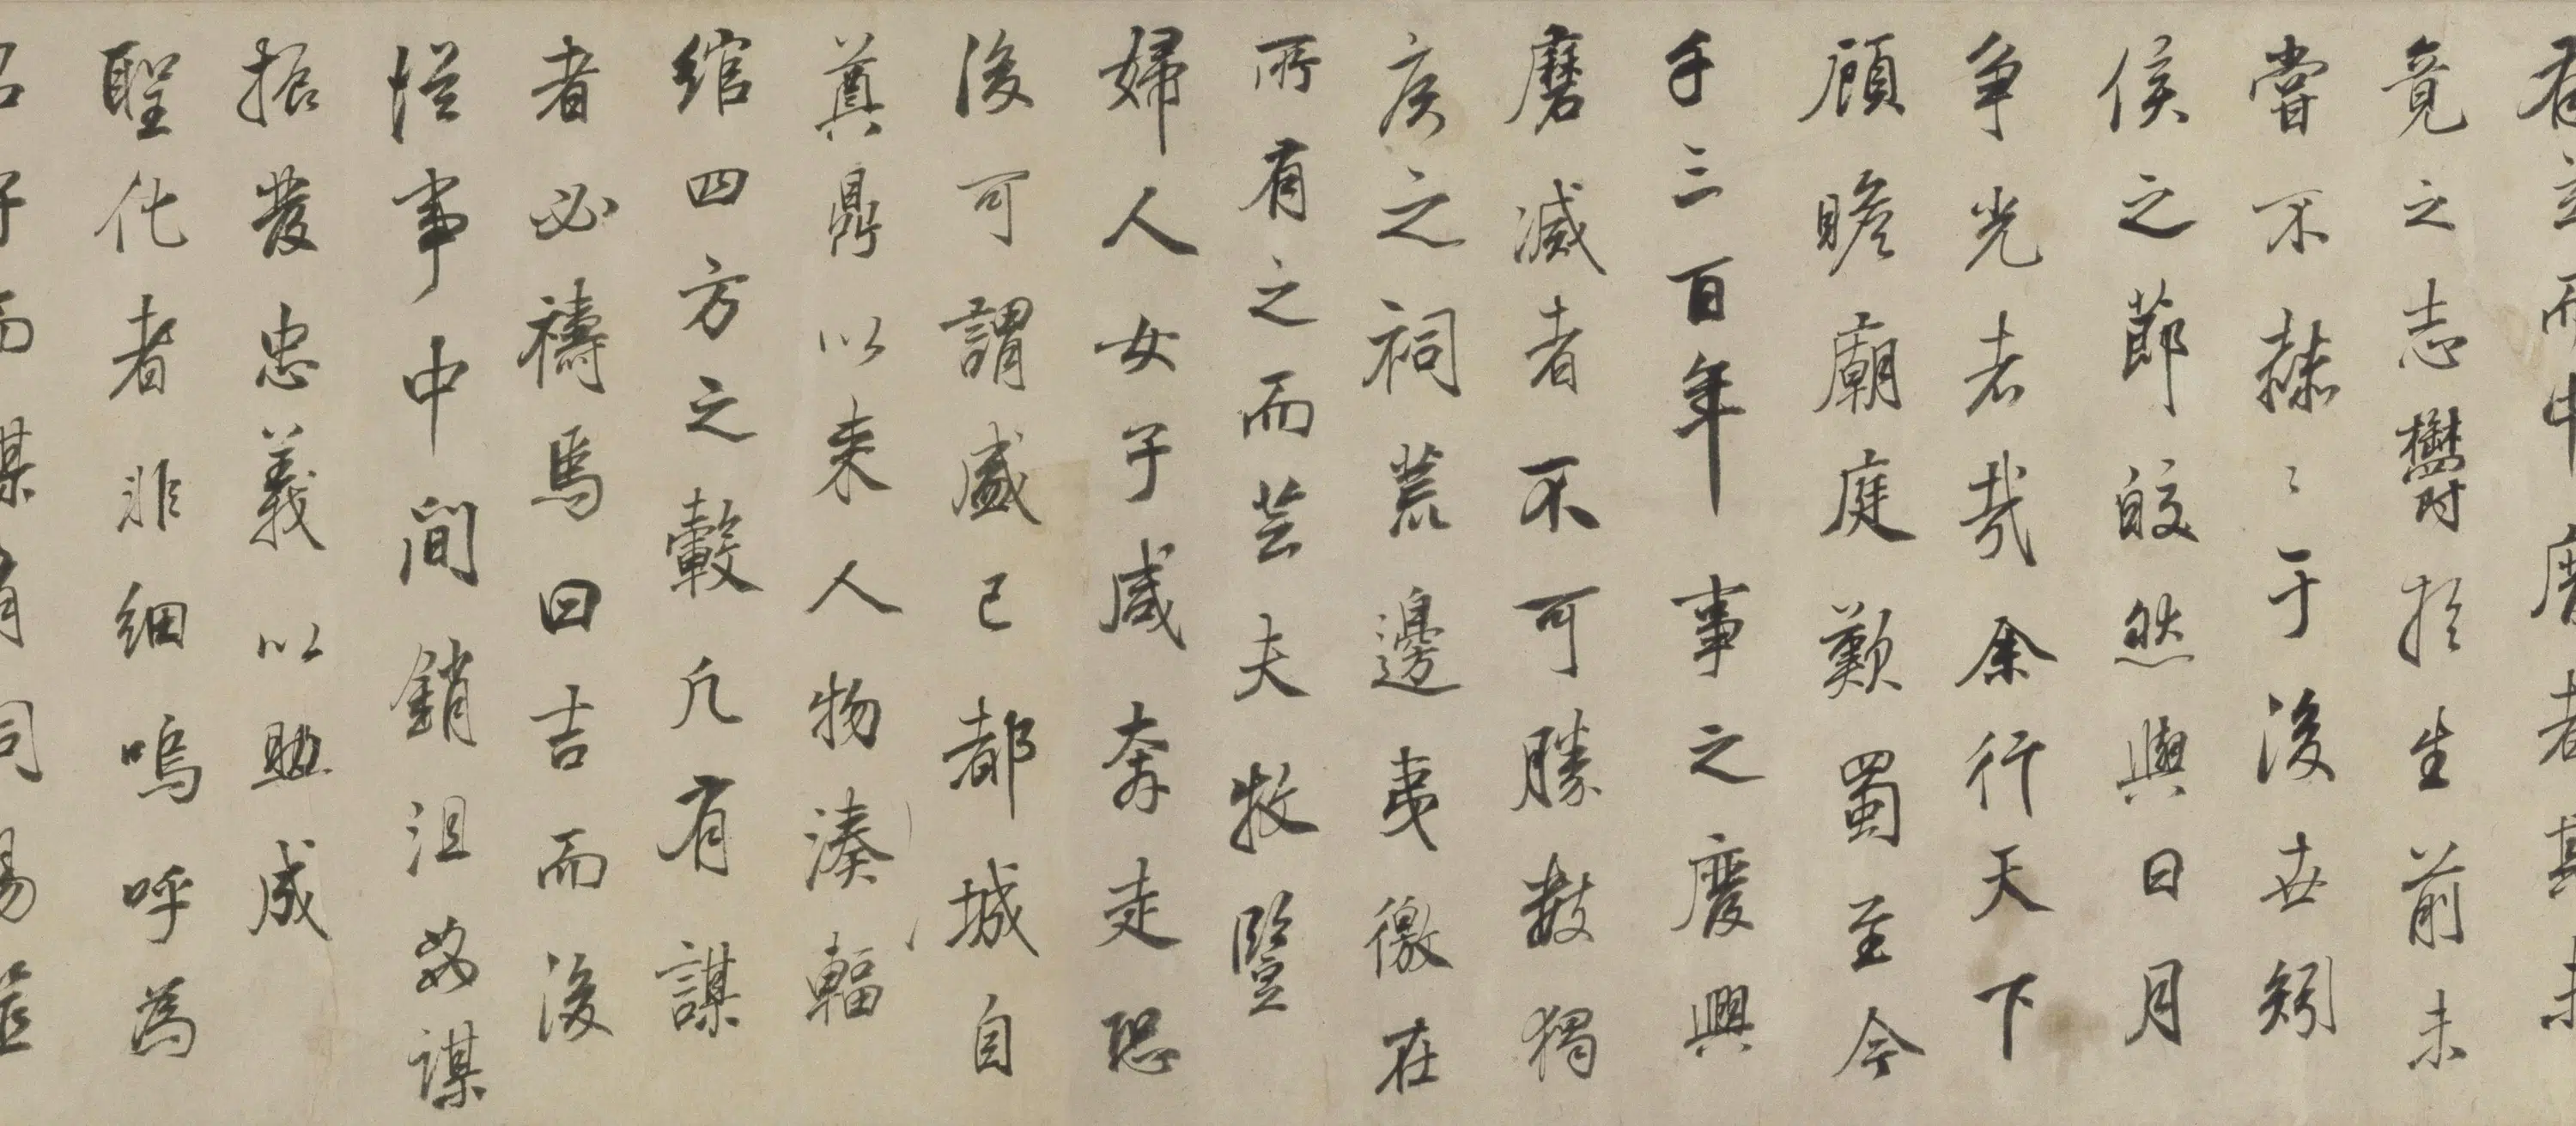 竟之志鬱於生前未
嘗不赫〻于後世矧
侯之節皎然與日月
爭光者哉余行天下
顧瞻廟庭歎蜀至今
千三百年事之廢興
磨滅者不可勝數獨
侯之祠荒邊夷徼在
所有之而芸夫牧豎
婦人女子咸奔走恐
後可謂盛已都城自
奠鼎以来人物湊輻
綰四方之轂凡有謀
者必禱焉曰吉而後
從事中間銷沮姦謀
振發忠義以助成
聖化者非細嗚呼為